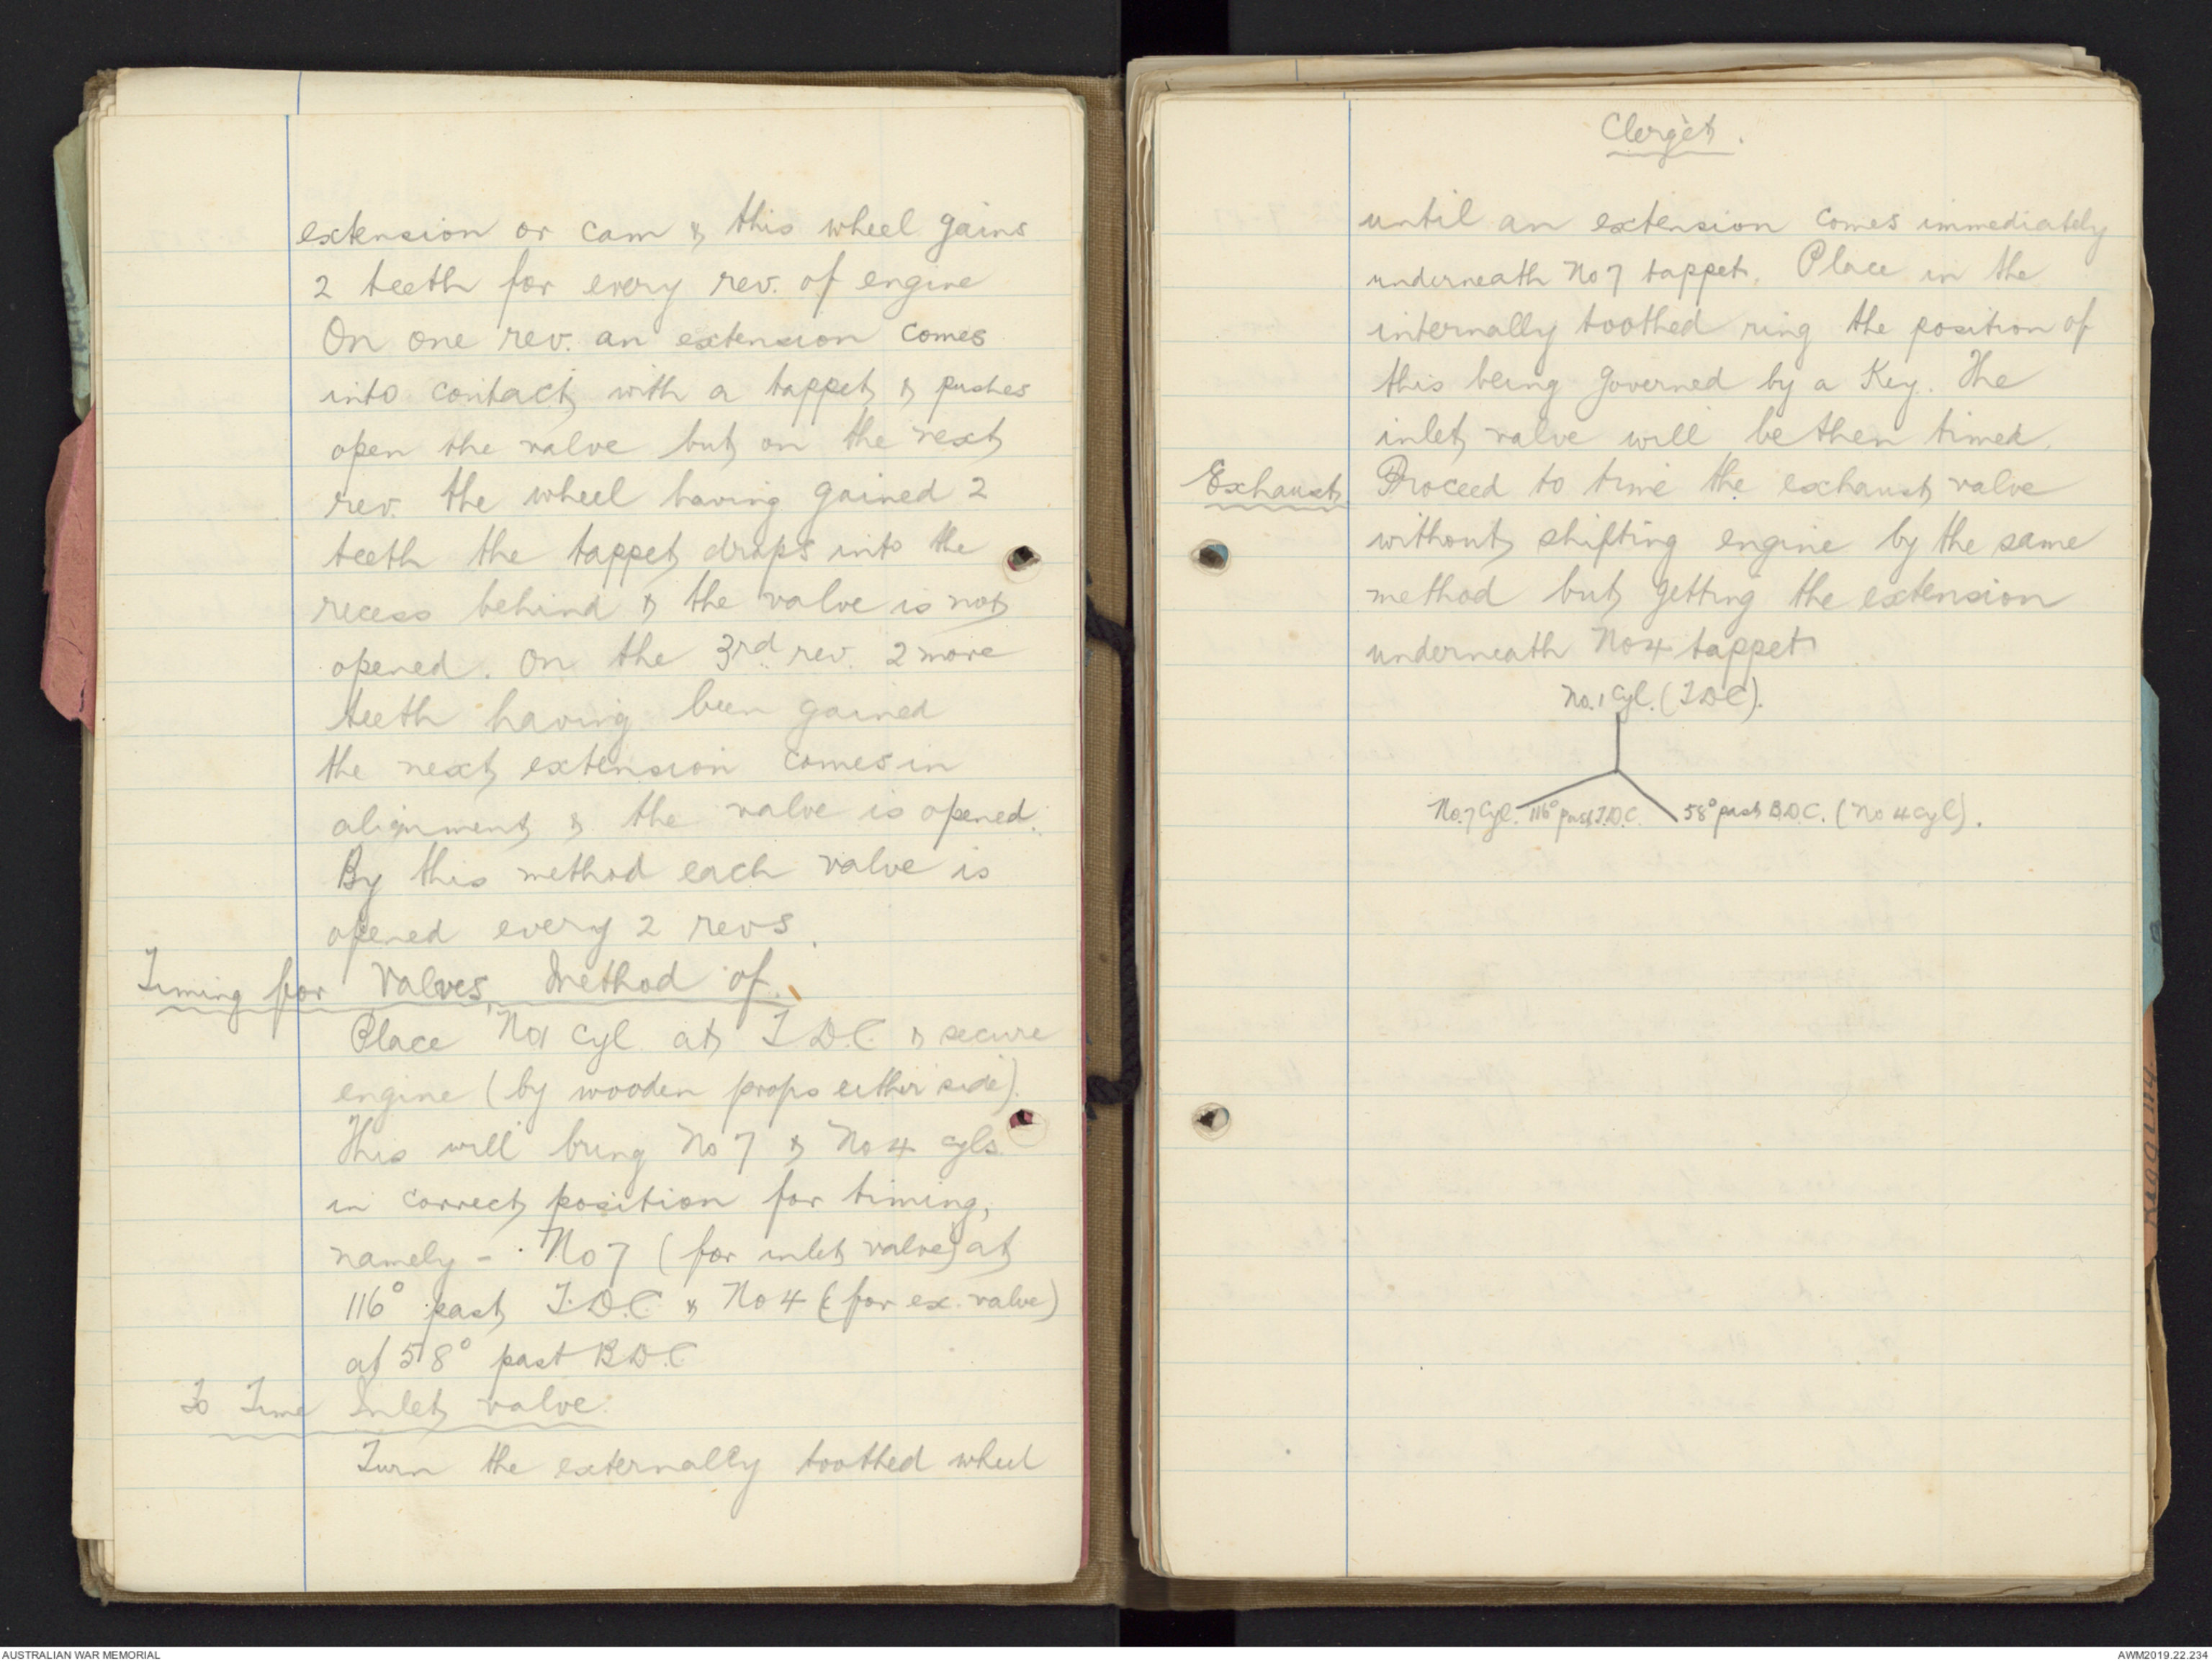 extension or cam & this wheel gains
2 teeth for every rev. of engine
On one rev. an extension comes
into contact with a tappet & pushes
open the valve but on the next
rev. the wheel having gained 2
teeth the tappet drops into the
recess behind & the valve is not
opened. On the 3rd rev. 2 more
teeth having been gained
the next extension comes in
alignment & the valve is opened.
By this method each valve is
opened every 2 revs.
Timing for Valves, Method of.
Place No1 Cyl. at T.D.C. & secure
engine (by wooden props either side).
This will bring No 7 & No 4 cyls.
in correct position for timing,
namely - No 7 (for inlet valve) at
116° past T.D.C. & No 4 (for ex. valve)
at 58° past B.D.C.
To Time Inlet valve.
Turn the externally toothed wheel
Clerget.
until an extension comes immediately
underneath No 7 tappet. Place in the
internally toothed ring the position of
this being governed by a Key. The
inlet valve will be then timed.
Exhaust. Proceed to time the exhaust valve
without shifting engine by the same
method but getting the extension
underneath No 4 tappet
No. 1 Cyl. (T.D.C).
No. 7 Cyl. 116° past T.D.C. 58° past B.D.C. (No 4 Cyl).
AUSTRALIAN WAR MEMORIAL
AWM2019.22.234